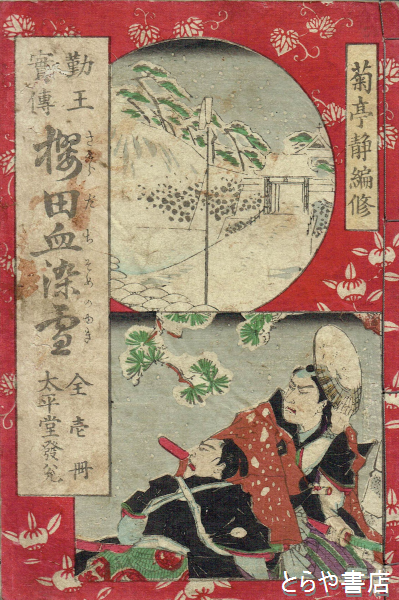 菊亭静編修
勤王
實傳
櫻田血染雪
さくらだちぞめのゆき
全壱冊
太平堂發兌
とらや書店